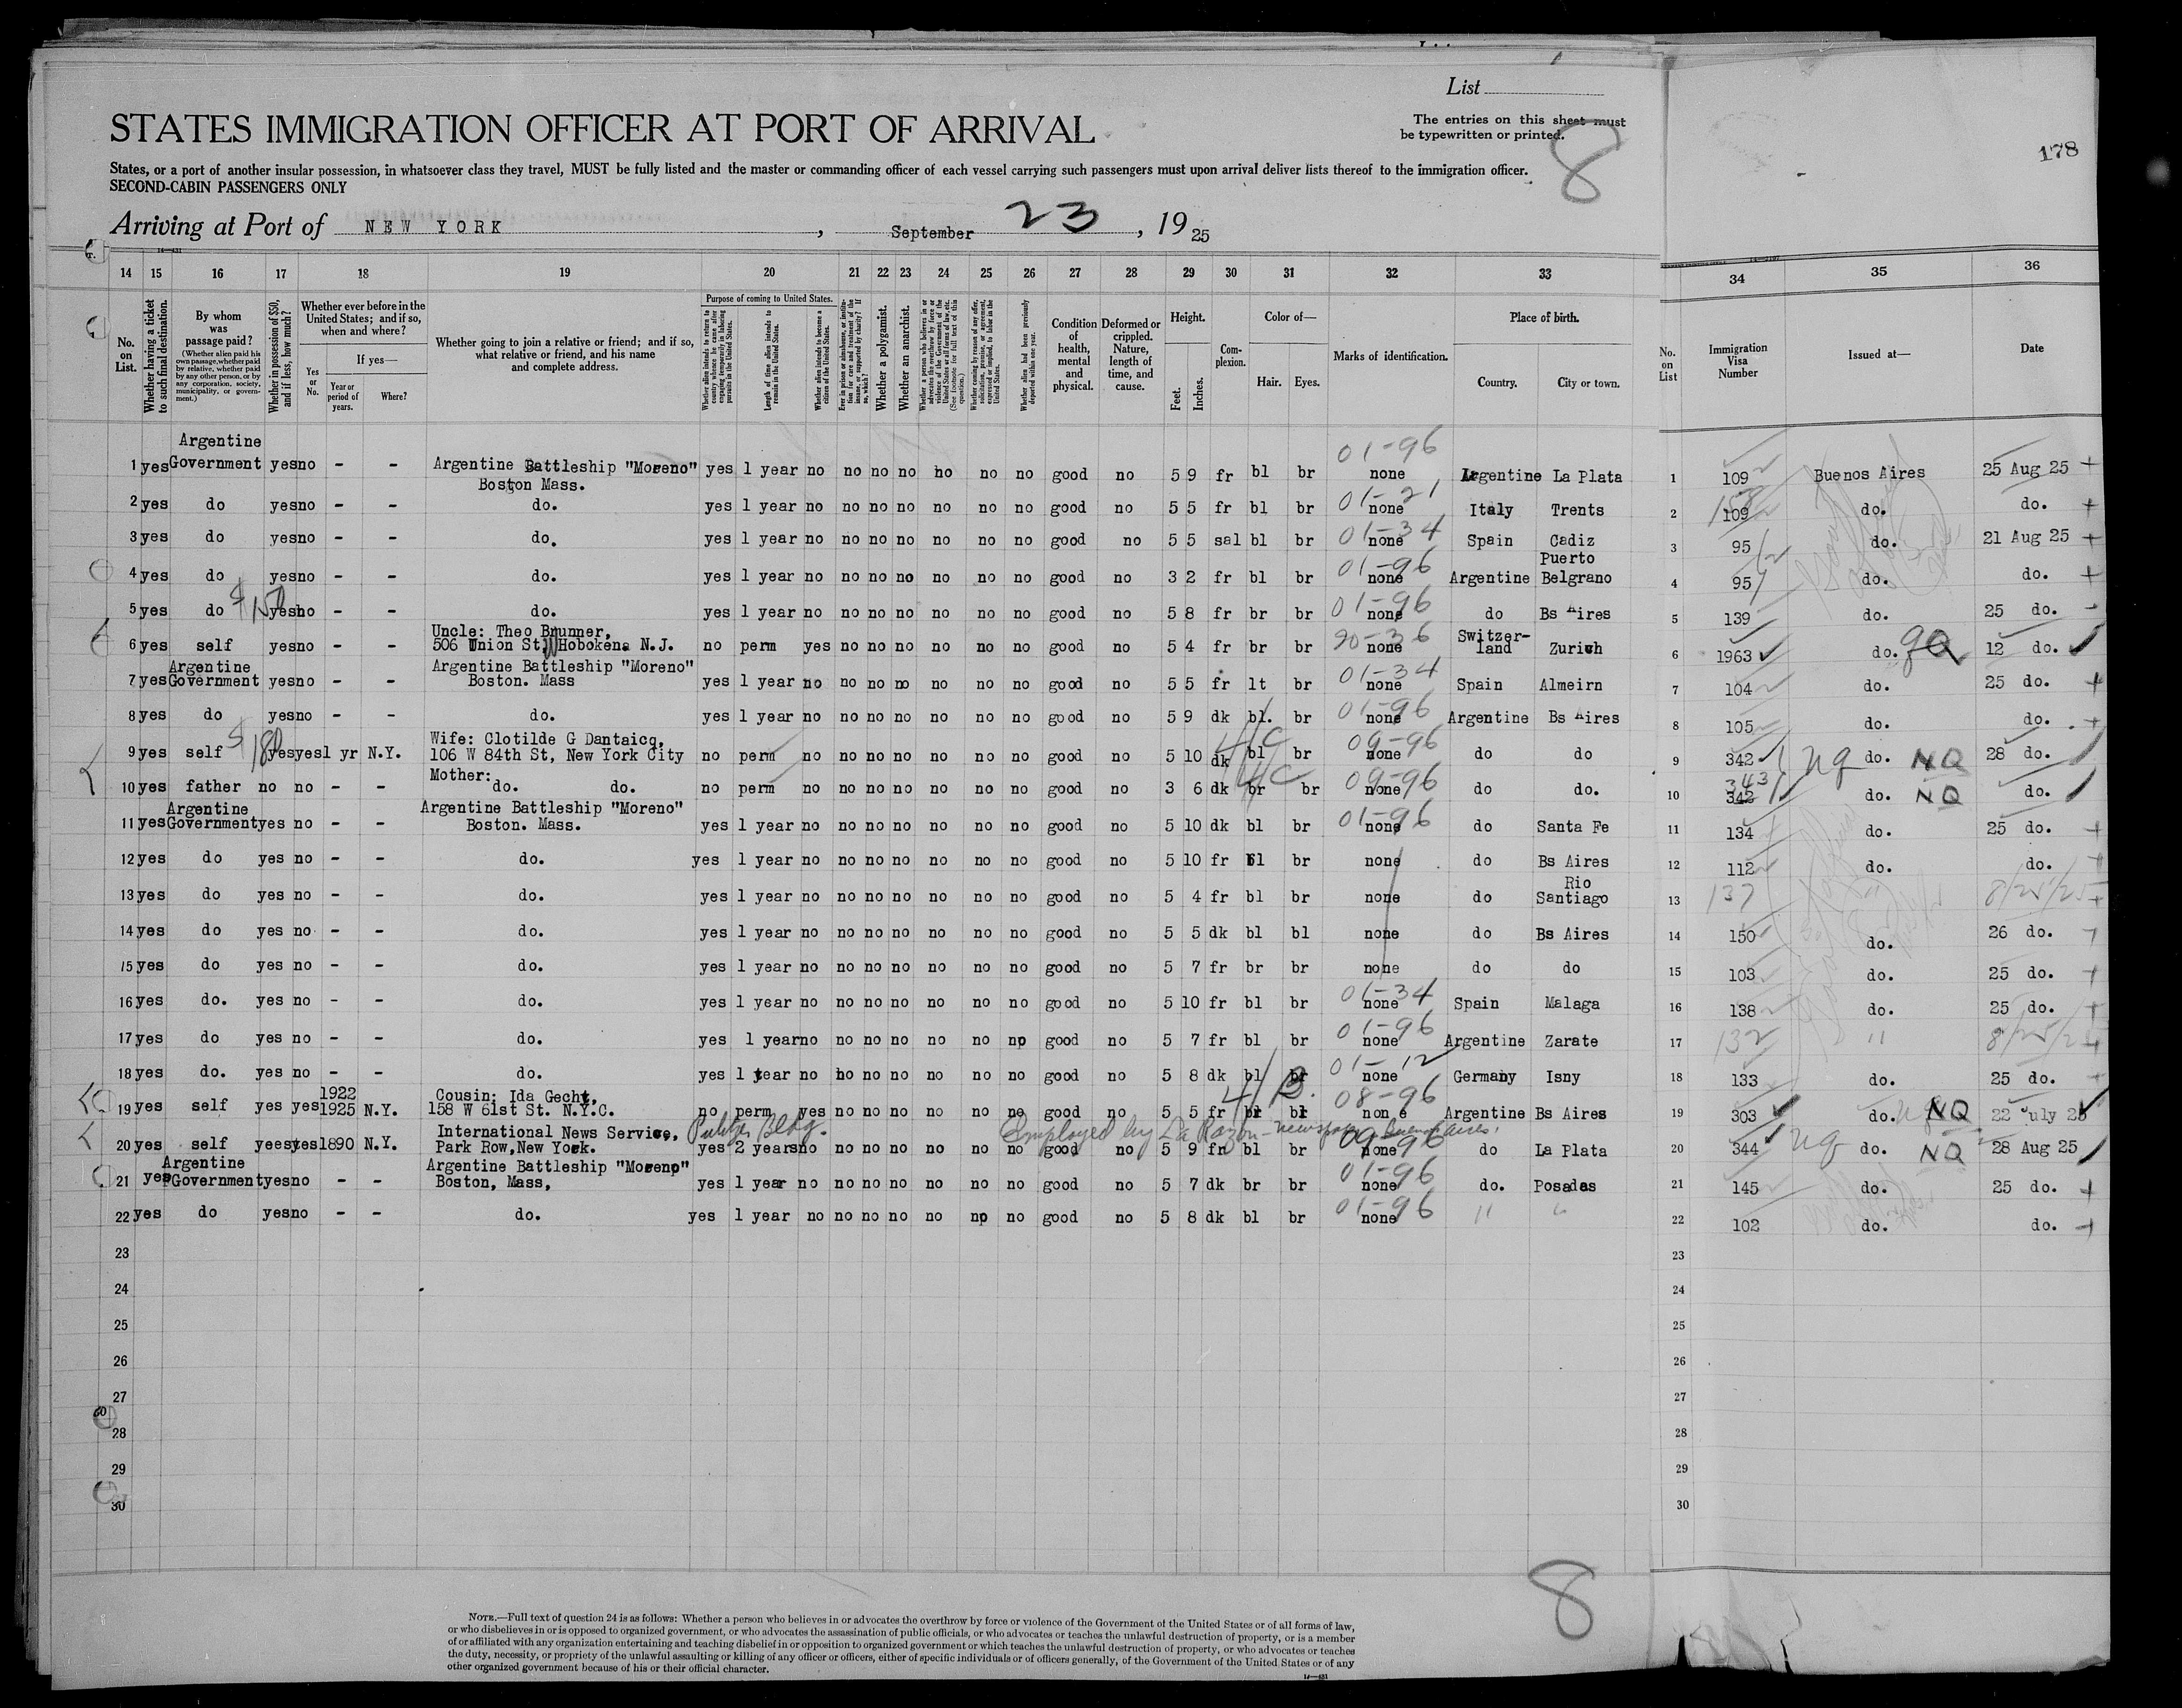 List
STATES IMMIGRATION OFFICER AT PORT OF ARRIVAL
The entries on this sheet must
be typewritten or printed.
8
178
States, or a port of another insular possession, in whatsoever class they travel, MUST be fully listed and the master or commanding officer of each vessel carrying such passengers must upon arrival deliver lists thereof to the immigration officer.
SECOND-CABIN PASSENGERS ONLY
Arriving at Port of NEW YORK, September 23, 1925
14 15 16 17 18 19 20 21 22 23 24 25 26 27 28 29 30 31 32 33 34 35 36
No. on List.
Whether having a ticket to such final destination.
By whom was passage paid?
(Whether alien paid his own passage, whether paid by relative, whether paid by any other person, or by any corporation, society, municipality, or government.)
Whether in possession of $50, and if less, how much?
Whether ever before in the United States; and if so, when and where?
Yes or No.
If yes—
Year or period of years.
Where?
Whether going to join a relative or friend; and if so, what relative or friend, and his name and complete address.
Purpose of coming to United States.
Whether alien intends to return to country whence he came after engaging temporarily in laboring pursuits in the United States.
Length of time alien intends to remain in the United States.
Whether alien intends to become a citizen of the United States.
Ever in prison or almshouse, or institution for care and treatment of the insane, or supported by charity? If so, which?
Whether a polygamist.
Whether an anarchist.
Whether a person who believes in or advocates the overthrow by force or violence of the Government of the United States or all forms of law, etc. (See footnote for full text of this question.)
Whether coming by reason of any offer, solicitation, promise, or agreement, expressed or implied, to labor in the United States.
Whether alien had been previously deported within one year.
Condition of health, mental and physical.
Deformed or crippled. Nature, length of time, and cause.
Height.
Feet.
Inches.
Complexion.
Color of—
Hair.
Eyes.
Marks of identification.
Place of birth.
Country.
City or town.
No. on List
Immigration Visa Number
Issued at—
Date
Argentine 01-96
1 yes Government yes no - - Argentine Battleship "Moreno" yes 1 year no no no no no no no good no 5 9 fr bl br none Argentine La Plata 1 109 Buenos Aires 25 Aug 25 +
Boston Mass.
2 yes do yes no - - do. yes 1 year no no no no no no no good no 5 5 fr bl br 01-21 none Italy Trents 2 109 do. do. +
3 yes do yes no - - do. yes 1 year no no no no no no no good no 5 5 sal bl br 01-34 none Spain Cadiz 3 95 do. 21 Aug 25 +
Puerto
4 yes do yes no - - do. yes 1 year no no no no no no no good no 3 2 fr bl br 01-96 none Argentine Belgrano 4 95 do. do. +
5 yes do $150 yes no - - do. yes 1 year no no no no no no no good no 5 8 fr br br 01-96 none do Bs Aires 5 139 do. 25 do.
Uncle: Theo Brunner,
6 yes self yes no - - 506 Union St, Hoboken. N.J. no perm yes no no no no no no good no 5 4 fr br br 90-36 none Switzerland Zurich 6 1963 do. 12 do.
Argentine Argentine Battleship "Moreno"
7 yes Government yes no - - Boston. Mass yes 1 year no no no no no no no good no 5 5 fr lt br 01-34 none Spain Almeirn 7 104 do. 25 do. +
8 yes do yes no - - do. yes 1 year no no no no no no no good no 5 9 dk bl. br 01-96 none Argentine Bs Aires 8 105 do. do. +
Wife: Clotilde G Dantaicq,
9 yes self $180 yes yes 1 yr N.Y. 106 W 84th St, New York City no perm no no no no no no no good no 5 10 dk 4/C bl br 09-96 none do do 9 342 nq do. NQ 28 do.
Mother:
10 yes father no no - - do. do. no perm no no no no no no no good no 3 6 dk 4/C br br 09-96 none do do. 10 343 342 do. NQ do.
Argentine Argentine Battleship "Moreno"
11 yes Government yes no - - Boston. Mass. yes 1 year no no no no no no no good no 5 10 dk bl br 01-96 none do Santa Fe 11 134 do. 25 do. +
12 yes do yes no - - do. yes 1 year no no no no no no no good no 5 10 fr bl br none do Bs Aires 12 112 do. do. +
Rio
13 yes do yes no - - do. yes 1 year no no no no no no no good no 5 4 fr bl br none do Santiago 13 137 8/25/25
14 yes do yes no - - do. yes 1 year no no no no no no no good no 5 5 dk bl bl none do Bs Aires 14 150 do. 26 do.
15 yes do yes no - - do. yes 1 year no no no no no no no good no 5 7 fr br br none do do 15 103 do. 25 do. +
16 yes do. yes no - - do. yes 1 year no no no no no no no good no 5 10 fr bl br 01-34 none Spain Malaga 16 138 do. 25 do. +
17 yes do yes no - - do. yes 1 year no no no no no no no good no 5 7 fr bl br 01-96 none Argentine Zarate 17 132 " 8/25/25
18 yes do. yes no - - do. yes 1 year no no no no no no no good no 5 8 dk bl br 01-12 none Germany Isny 18 133 do. 25 do.
1922 Cousin: Ida Gecht,
19 yes self yes yes 1925 N.Y. 158 W 61st St. N.Y.C. no perm yes no no no no no no good no 5 5 fr 4/B. br bl 08-96 none Argentine Bs Aires 19 303 do. NQ 22 July 25
International News Service, Pulitz Bldg. Employed by La Razon - newspaper - Buenos Aires.
20 yes self yes yes 1890 N.Y. Park Row, New York. yes 2 years no no no no no no no good no 5 9 fr bl br 09-96 none do La Plata 20 344 nq do. NQ 28 Aug 25
Argentine Argentine Battleship "Moreno"
21 yes Government yes no - - Boston, Mass, yes 1 year no no no no no no no good no 5 7 dk br br 01-96 none do. Posadas 21 145 do. 25 do. +
22 yes do yes no - - do. yes 1 year no no no no no no no good no 5 8 dk bl br 01-96 none " " 22 102 do. do. +
23 23
24 24
25 25
26 26
27 27
28 28
29 29
30 30
8
NOTE.—Full text of question 24 is as follows: Whether a person who believes in or advocates the overthrow by force or violence of the Government of the United States or of all forms of law,
or who disbelieves in or is opposed to organized government, or who advocates the assassination of public officials, or who advocates or teaches the unlawful destruction of property, or is a member
of or affiliated with any organization entertaining and teaching disbelief in or opposition to organized government or which teaches the unlawful destruction of property, or who advocates or teaches
the duty, necessity, or propriety of the unlawful assaulting or killing of any officer or officers, either of specific individuals or of officers generally, of the Government of the United States or of any
other organized government because of his or their official character.
14—431